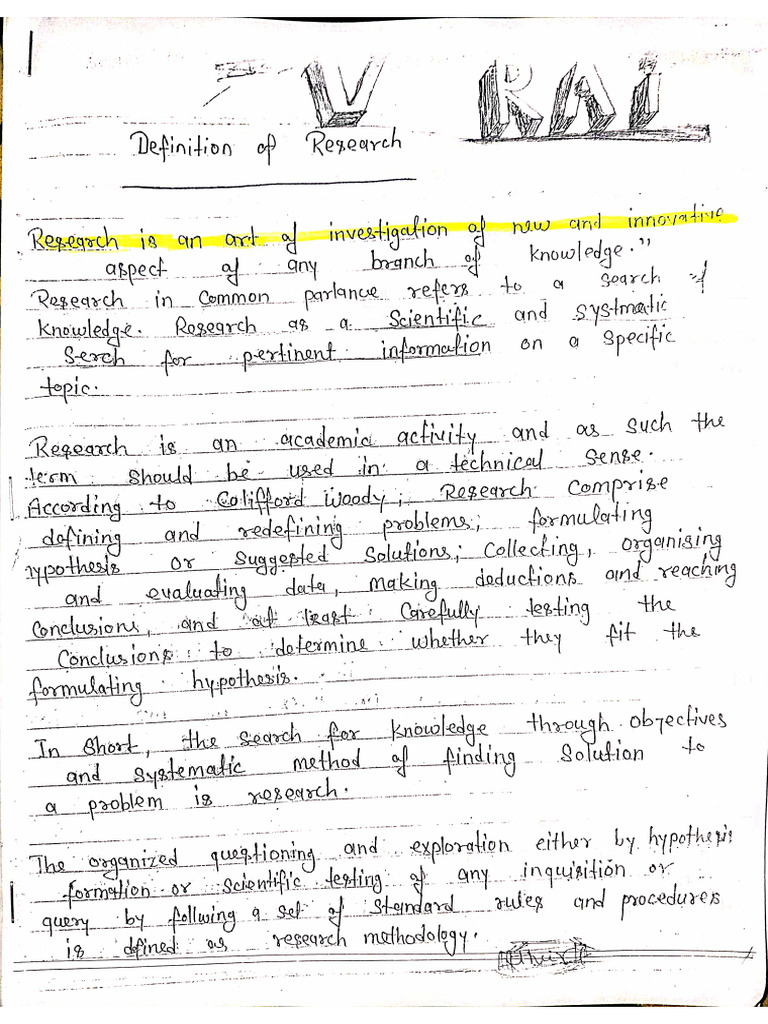 V RAI
Definition of Research
Research is an art of investigation of new and innovative
aspect of any branch of knowledge."
Research in common parlance refers to a search of
knowledge. Research as a Scientific and systmatic
Serch for pertinent information on a specific
topic.
Research is an academic activity and as such the
term should be used in a technical sense.
According to Colifford Woody; Research comprise
defining and redefining problems; formulating
hypothesis or suggested solutions; collecting, organising
and evaluating data, making deductions and reaching
conclusions, and at least carefully testing the
conclusions to determine whether they fit the
formulating hypothesis.
In short, the search for knowledge through objectives
and systematic method of finding solution to
a problem is research.
The organized questioning and exploration either by hypothesis
formation or scientific testing of any inquisition or
query by follwing a set of standard rules and procedures
is defined as research methodology.